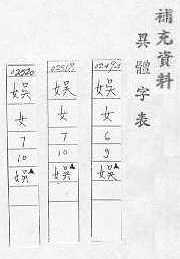 補充資料
異體字表
娛
女
6
9
娛
娛
女
7
10
娛
娛
女
7
10
娛